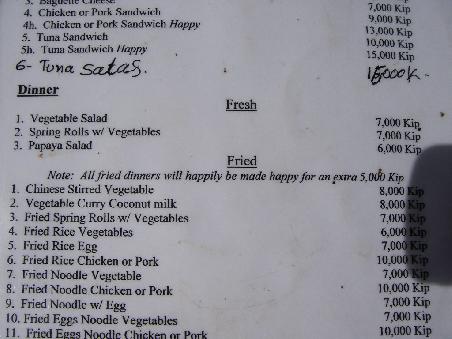 3. Baguette Cheese
4. Chicken or Pork Sandwich 7,000 Kip
4h. Chicken or Pork Sandwich Happy 9,000 Kip
5. Tuna Sandwich 13,000 Kip
5h. Tuna Sandwich Happy 10,000 Kip
15,000 Kip
6- Tuna Salas. 15,000K-
Dinner
Fresh
1. Vegetable Salad 7,000 Kip
2. Spring Rolls w/ Vegetables 7,000 Kip
3. Papaya Salad 6,000 Kip
Fried
Note: All fried dinners will happily be made happy for an extra 5,000 Kip
1. Chinese Stirred Vegetable 8,000 Kip
2. Vegetable Curry Coconut milk 8,000 Kip
3. Fried Spring Rolls w/ Vegetables 7,000 Kip
4. Fried Rice Vegetables 6,000 Kip
5. Fried Rice Egg 7,000 Kip
6. Fried Rice Chicken or Pork 10,000 Kip
7. Fried Noodle Vegetable 7,000 Kip
8. Fried Noodle Chicken or Pork 10,000 Kip
9. Fried Noodle w/ Egg 7,000 Kip
10. Fried Eggs Noodle Vegetables 7,000 Kip
11. Fried Eggs Noodle Chicken or Pork 10,000 Kip